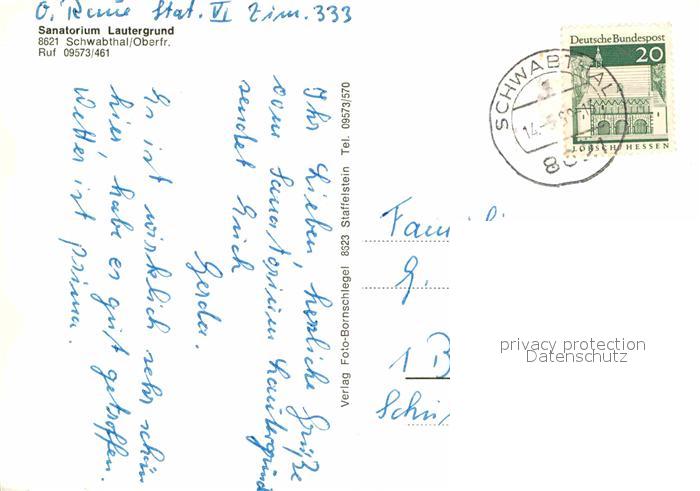 O. Reme Stat. VI Zim. 333
Sanatorium Lautergrund
8621 Schwabthal/Oberfr.
Ruf 09573/461
Ihr Lieben, herzliche Grüße
vom Sanatorium Lautergrund
sendet Euch
Gerda.
Es ist wirklich sehr schön
hier, habe es gut getroffen.
Wetter ist prima.
Verlag Foto-Bornschlegel 8623 Staffelstein Tel. 09573/570
Deutsche Bundespost
20
LORSCH/HESSEN
SCHWABTHAL
Fami
G.
1 B
privacy protection
Datenschutz